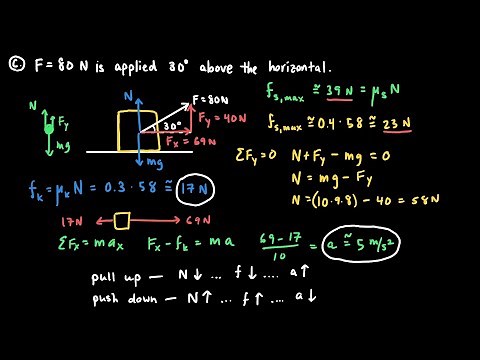 ⓒ F = 80 N is applied 30° above the horizontal.
N
Fy
mg
N
F = 80N
30°
Fy = 40N
Fx = 69N
mg
fs,max ≅ 39 N = μsN
fs,max ≅ 0.4 · 58 ≅ 23 N
ΣFy = 0 N + Fy - mg = 0
N = mg - Fy
N = (10·9.8) - 40 = 58N
fk = μkN = 0.3 · 58 ≅ 17 N
17N 69N
ΣFx = max Fx - fk = ma 69-17/10 = a ≅ 5 m/s²
pull up — N↓ ... f↓ .... a↑
push down — N↑ ... f↑ .... a↓